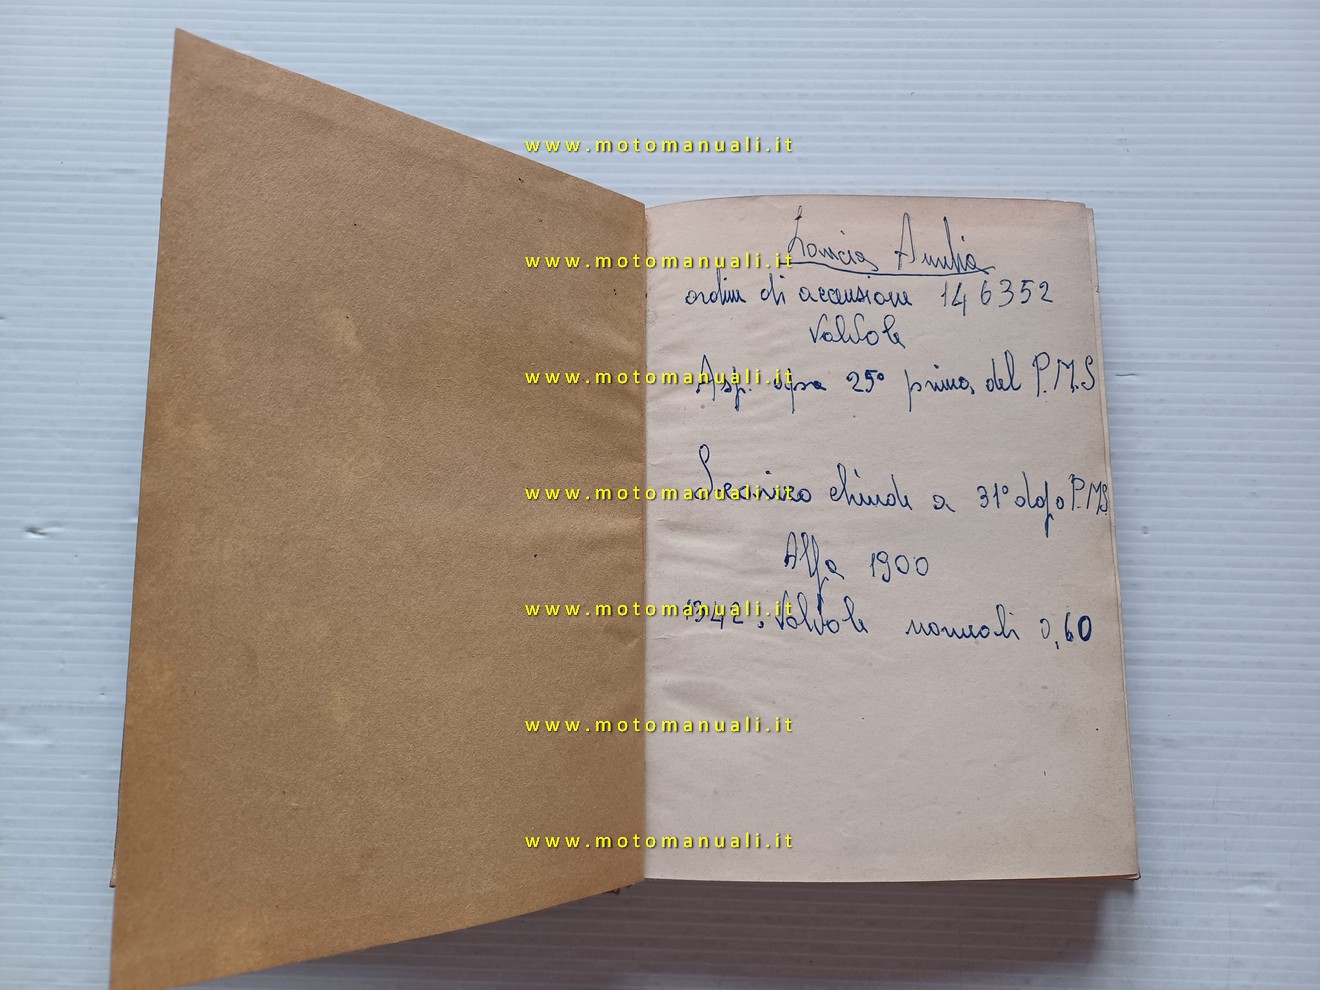 www.motomanuali.it
Lancia Aurelia
www.motomanuali.it
ordine di accensione 146352
Valvole
Asp. apre 25° prima del P.M.S
www.motomanuali.it
Scarico chiude a 31° dopo P.M.S.
www.motomanuali.it
Alfa 1900
1342. Valvole normali 0,60
www.motomanuali.it
www.motomanuali.it
www.motomanuali.it